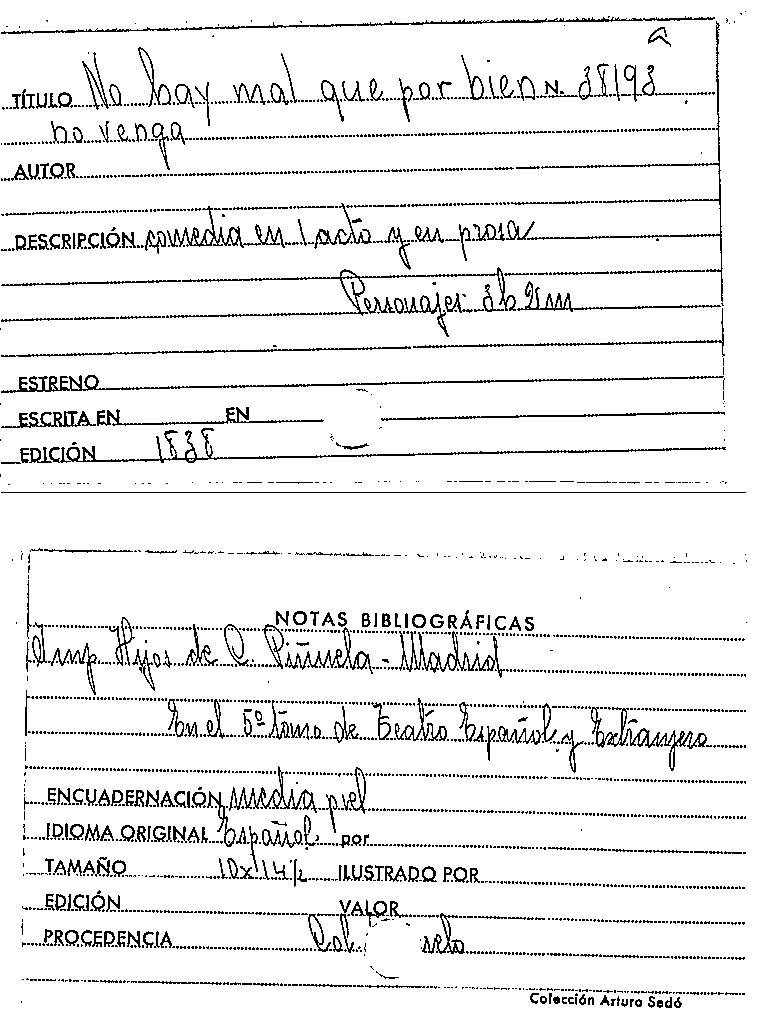 TÍTULO No hay mal que por bien N. 38193
no venga
AUTOR
DESCRIPCIÓN comedia en 1 acto y en prosa
Personajes 3h
ESTRENO
ESCRITA EN EN
EDICIÓN 1838
NOTAS BIBLIOGRÁFICAS
Imp Hijos de C. Piñuela - Madrid
En el 5º tomo de Teatro Español y Extranjero
ENCUADERNACIÓN media piel
IDIOMA ORIGINAL Español por
TAMAÑO 10x14½ ILUSTRADO POR
EDICIÓN VALOR
PROCEDENCIA Col.
Colección Arturo Sedó